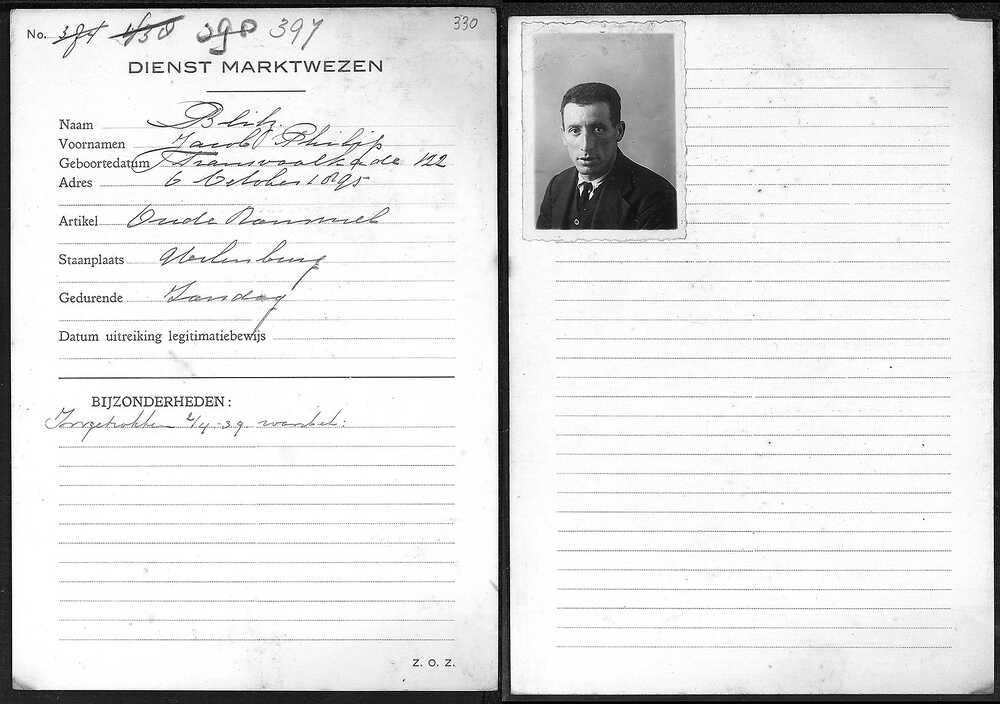 No. 384 430 390 397
330
DIENST MARKTWEZEN
Naam Blitz.
Voornamen Jacob Philip
Geboortedatum Transvaalkade 122
Adres 6 October 1895
Artikel Oude Rommel
Staanplaats Uilenburg
Gedurende Zondag
Datum uitreiking legitimatiebewijs
BIJZONDERHEDEN:
Ingetrokken 2/4-39
Z. O. Z.